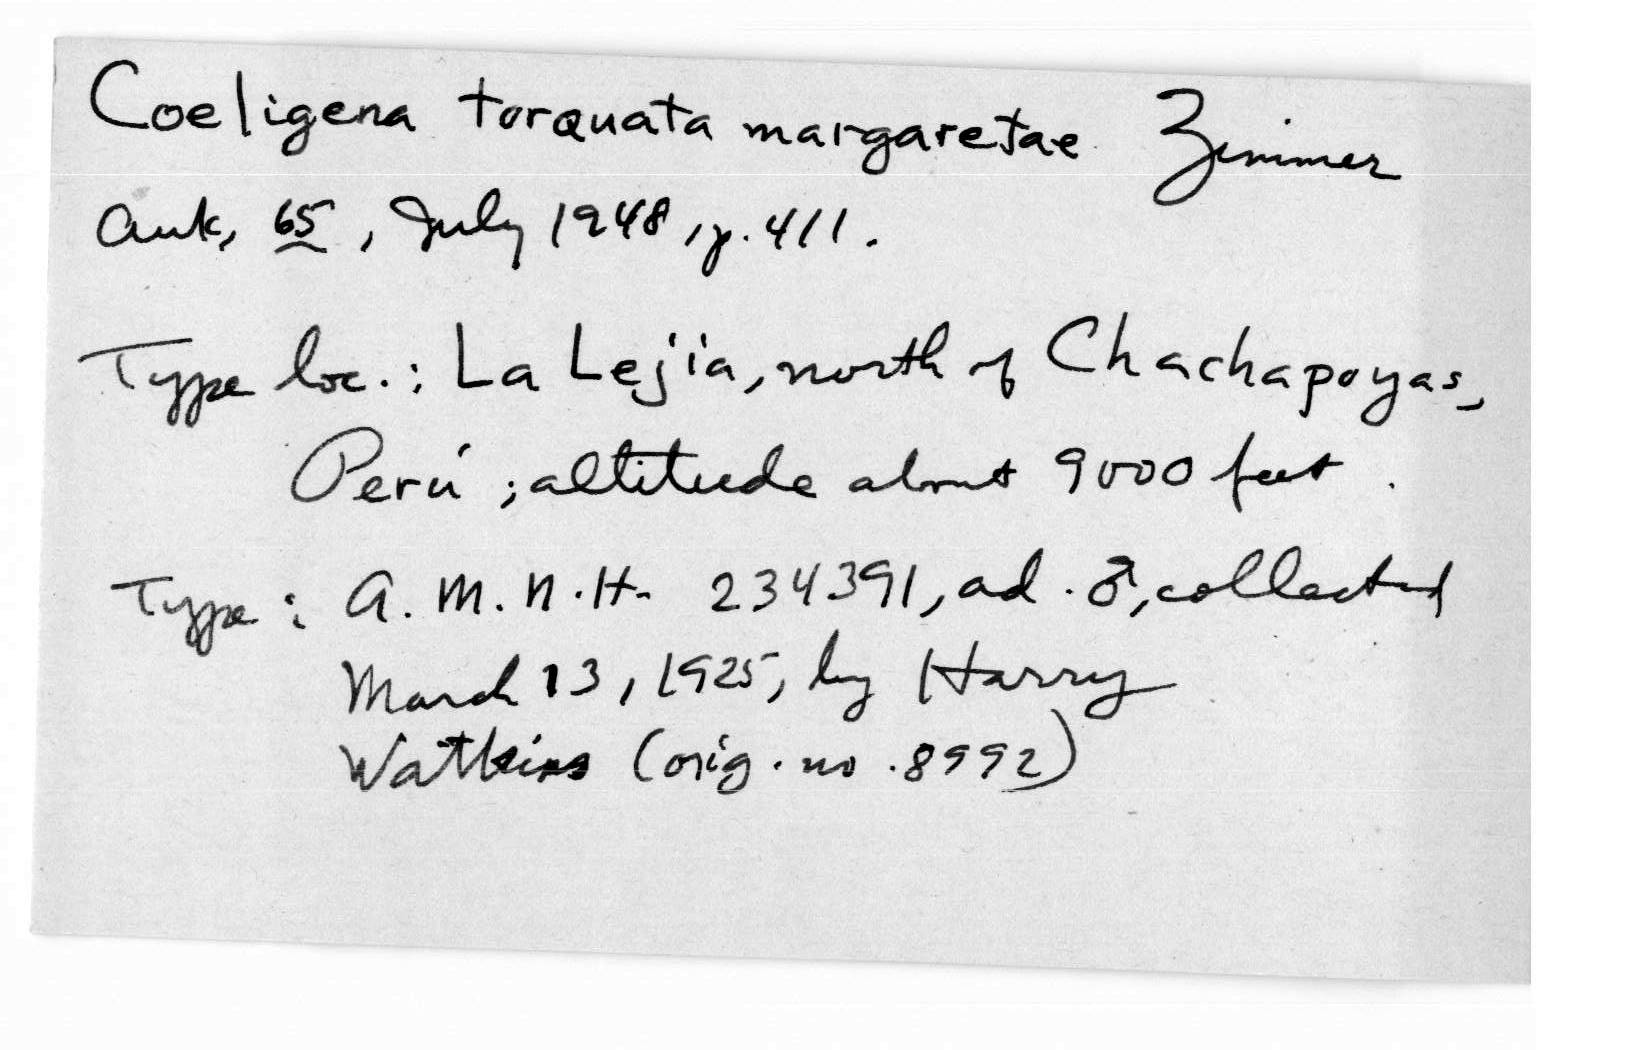 Coeligena torquata margaretae Zimmer
Auk, 65, July 1948, p. 411.
Type loc.: La Lejia, north of Chachapoyas,
Perú; altitude about 9000 feet.
Type: A.M.N.H. 234391, ad. ♂, collected
March 13, 1925, by Harry
Watkins (orig. no. 8992)